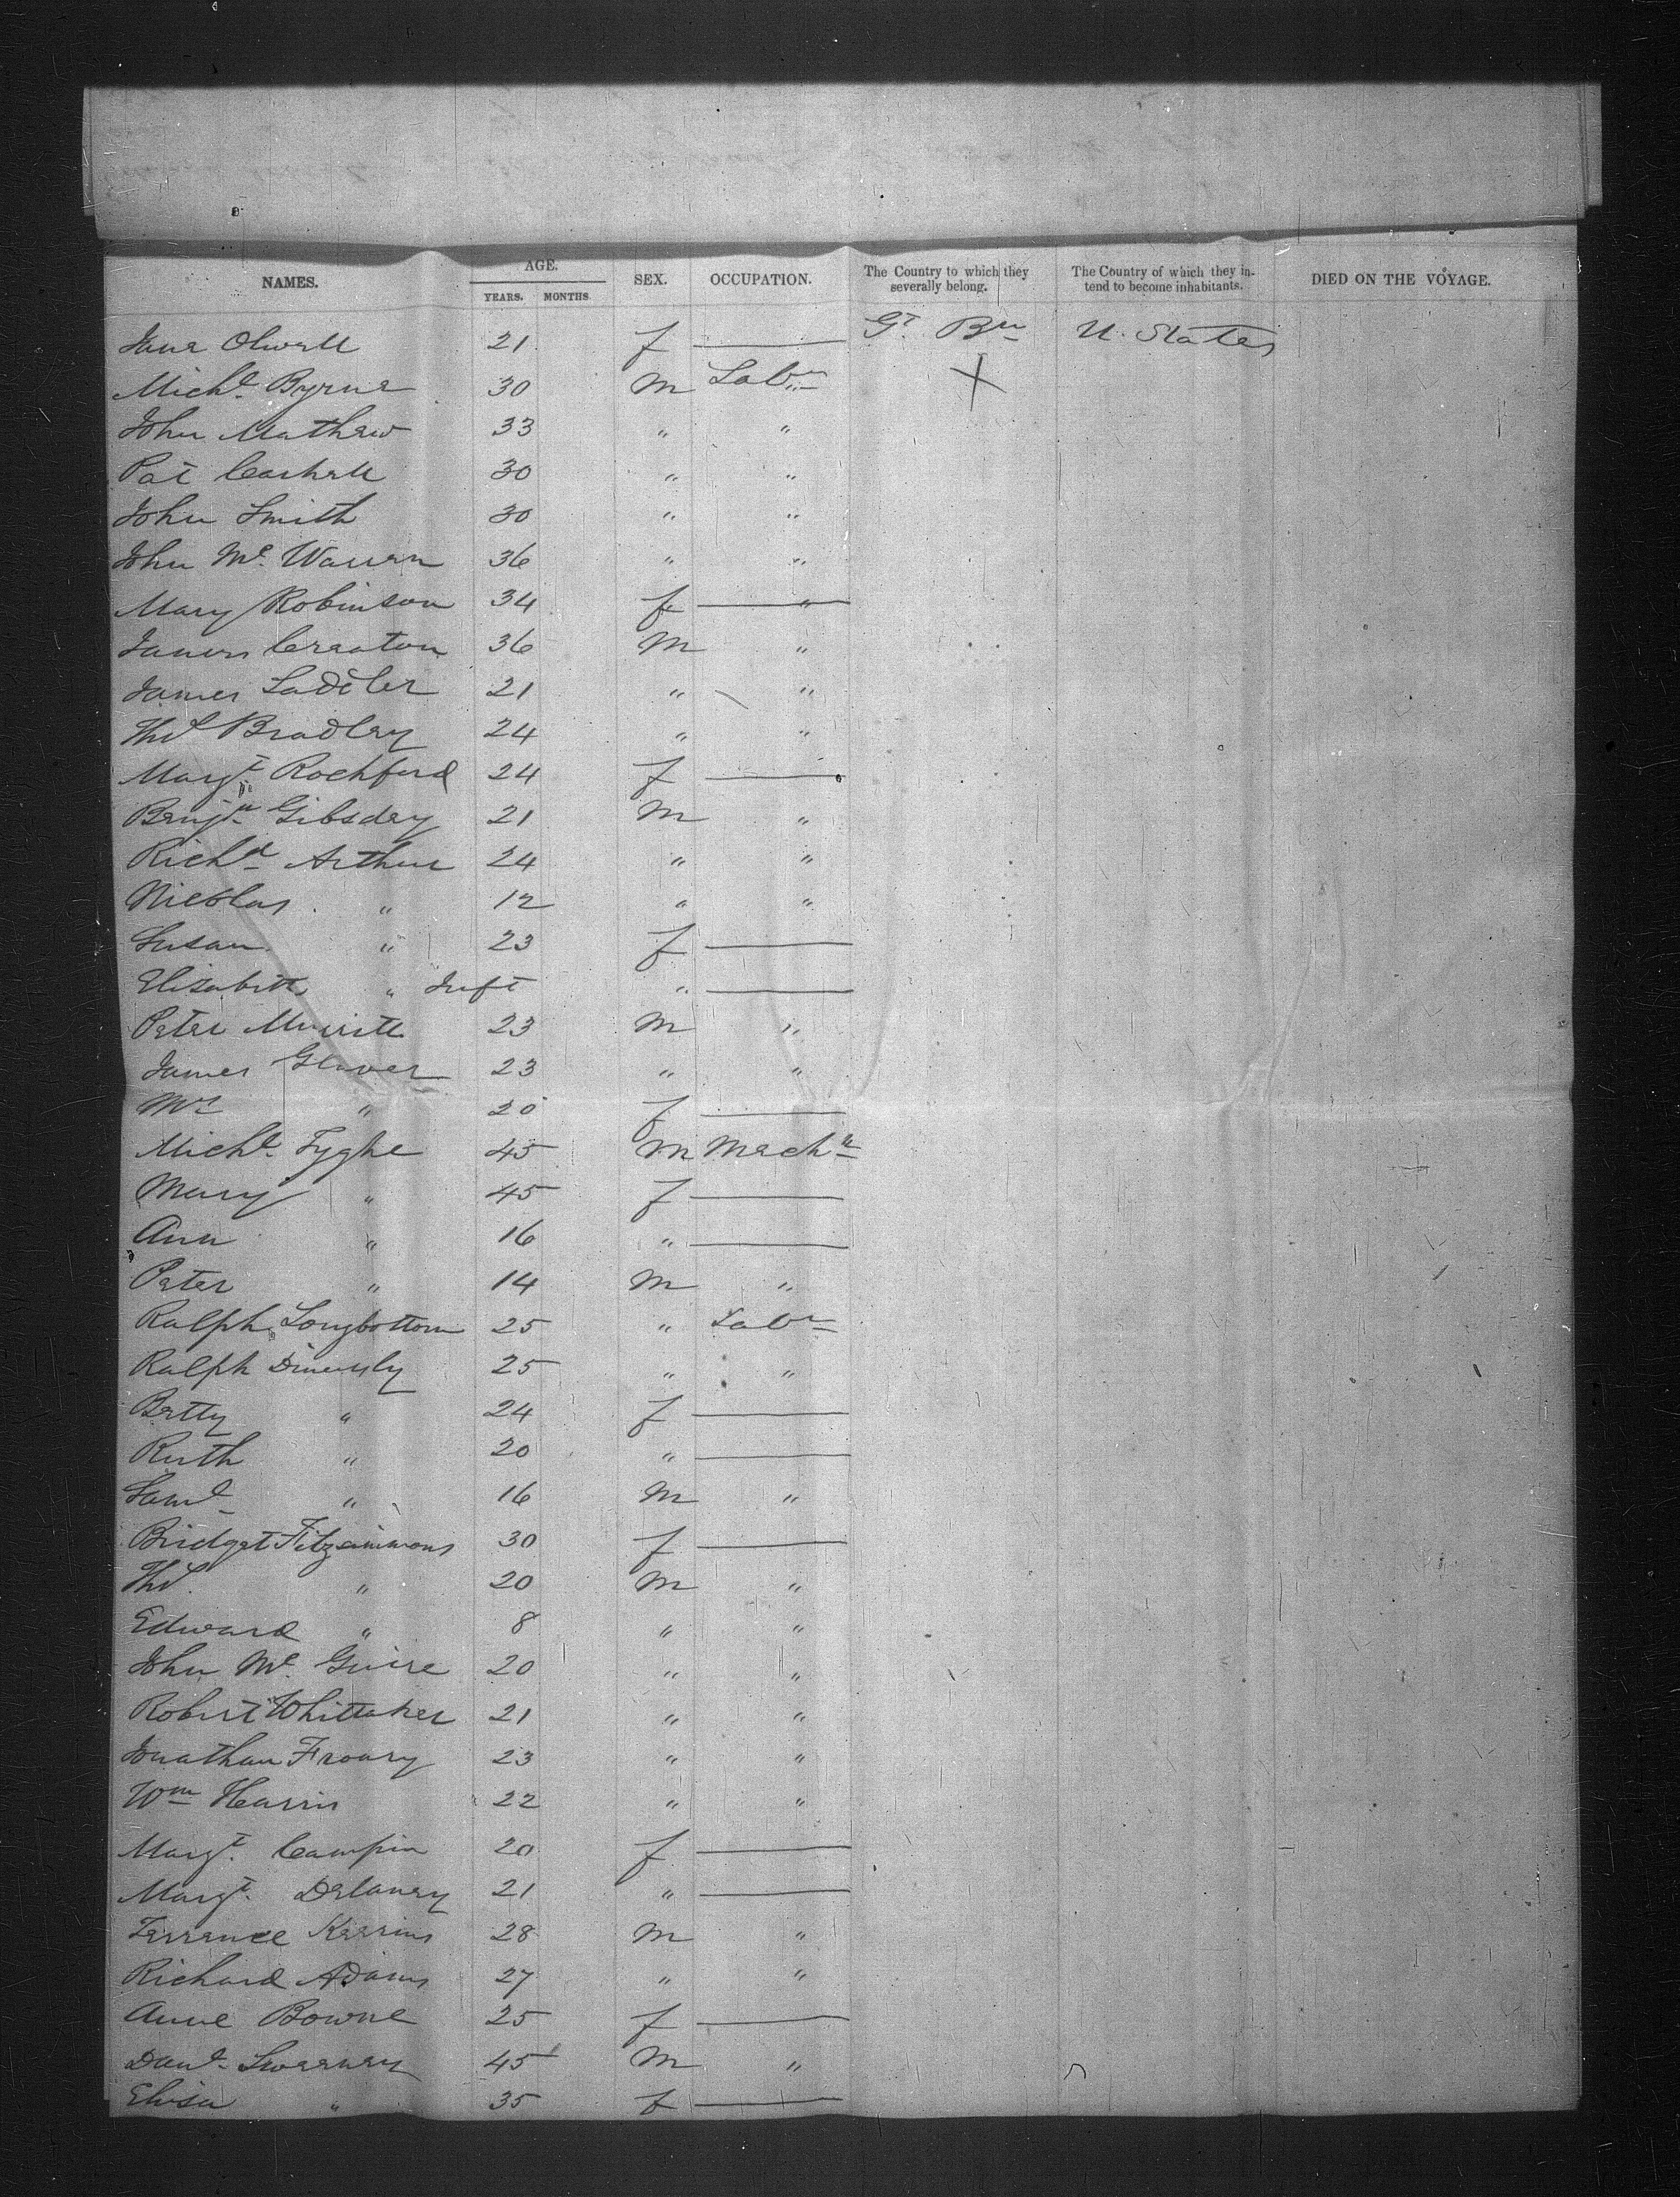 NAMES. AGE. SEX. OCCUPATION. The Country to which they severally belong. The Country of which they intend to become inhabitants. DIED ON THE VOYAGE.
YEARS. MONTHS
Jane Olwell 21 f —— Gt. Brn U. States
Michl. Byrne 30 M Labr
John Mathew 33 " "
Pat 30 " "
John Smith 30 " "
John Mc. Warren 36 " "
Mary Robinson 34 f —— "
James Creaton 36 M "
James Sadler 21 " "
Thos Bradley 24 " "
Margt. Rochford 24 f ——
Benjn Gibsday 21 M "
Richd Arthur 24 " "
Nicolas " 12 " "
Susan " 23 f ——
Elisabith " Inft " ——
Peter Merritt 23 M "
James Glover 23 " "
Mrs " 20 f ——
Michl. Tyghe 45 M Mechn
Mary " 45 f ——
Ann " 16 " ——
Peter " 14 M "
Ralph Longbottom 25 " Labr
Ralph 25 " "
Betty " 24 f ——
Ruth " 20 " ——
Saml " 16 M "
Bridget Fitzsimmons 30 f ——
Thos. " 20 M "
Edward " 8 " "
John Mc. Guire 20 " "
Robert Whittaker 21 " "
Jonathan Froary 23 " "
Wm Harris 22 " "
Margt. Campin 20 f ——
Margt. Delaney 21 " ——
Terrance Kerrins 28 M "
Richard Adams 27 " "
Anne Bowne 25 f ——
Danl. Sweeney 45 M "
Elisa " 35 f ——